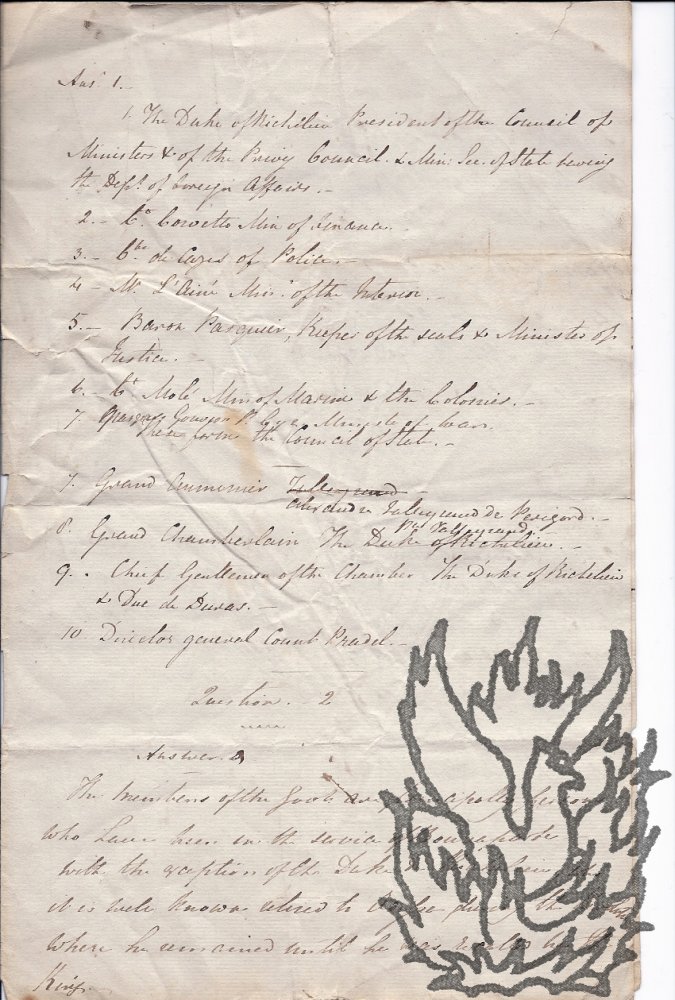 Ansr. 1.-
1. The Duke of Richelieu President of the Council of
Ministers & of the Privy Council. & Min: Sec. of State having
the Dept. of foreign Affairs.-
2.- Ct. Corvetto Min of Finance.-
3.- Cte. de Cazes of Police.-
4- Mr. L'Ainé Minr. of the Interior.-
5.- Baron Pasquier, Keeper of the seals & Minister of
Justice.-
6.- Ct. Molé Min of Marine & the Colonies.-
7. Gouvion St. Cyr Ministe of War.
These forms the Council of State.-
7. Grand Aumonier Talleyrand
Alexandre Talleyrand de Perigord.-
Pce Talleyrand
8. Grand Chamberlain The Duke of Richelieu.-
9.. Chief Gentlemen of the Chamber The Duke of Richelieu
& Duc de Duras.-
10 Director general Count Pradel.-
Question. 2
Answer. 2
The Members of the Govt. are principally persons
who have been in the service of Bounaparte
with the exception of the Duke
it is well known retired to during the
where he remained until he was by the
King-